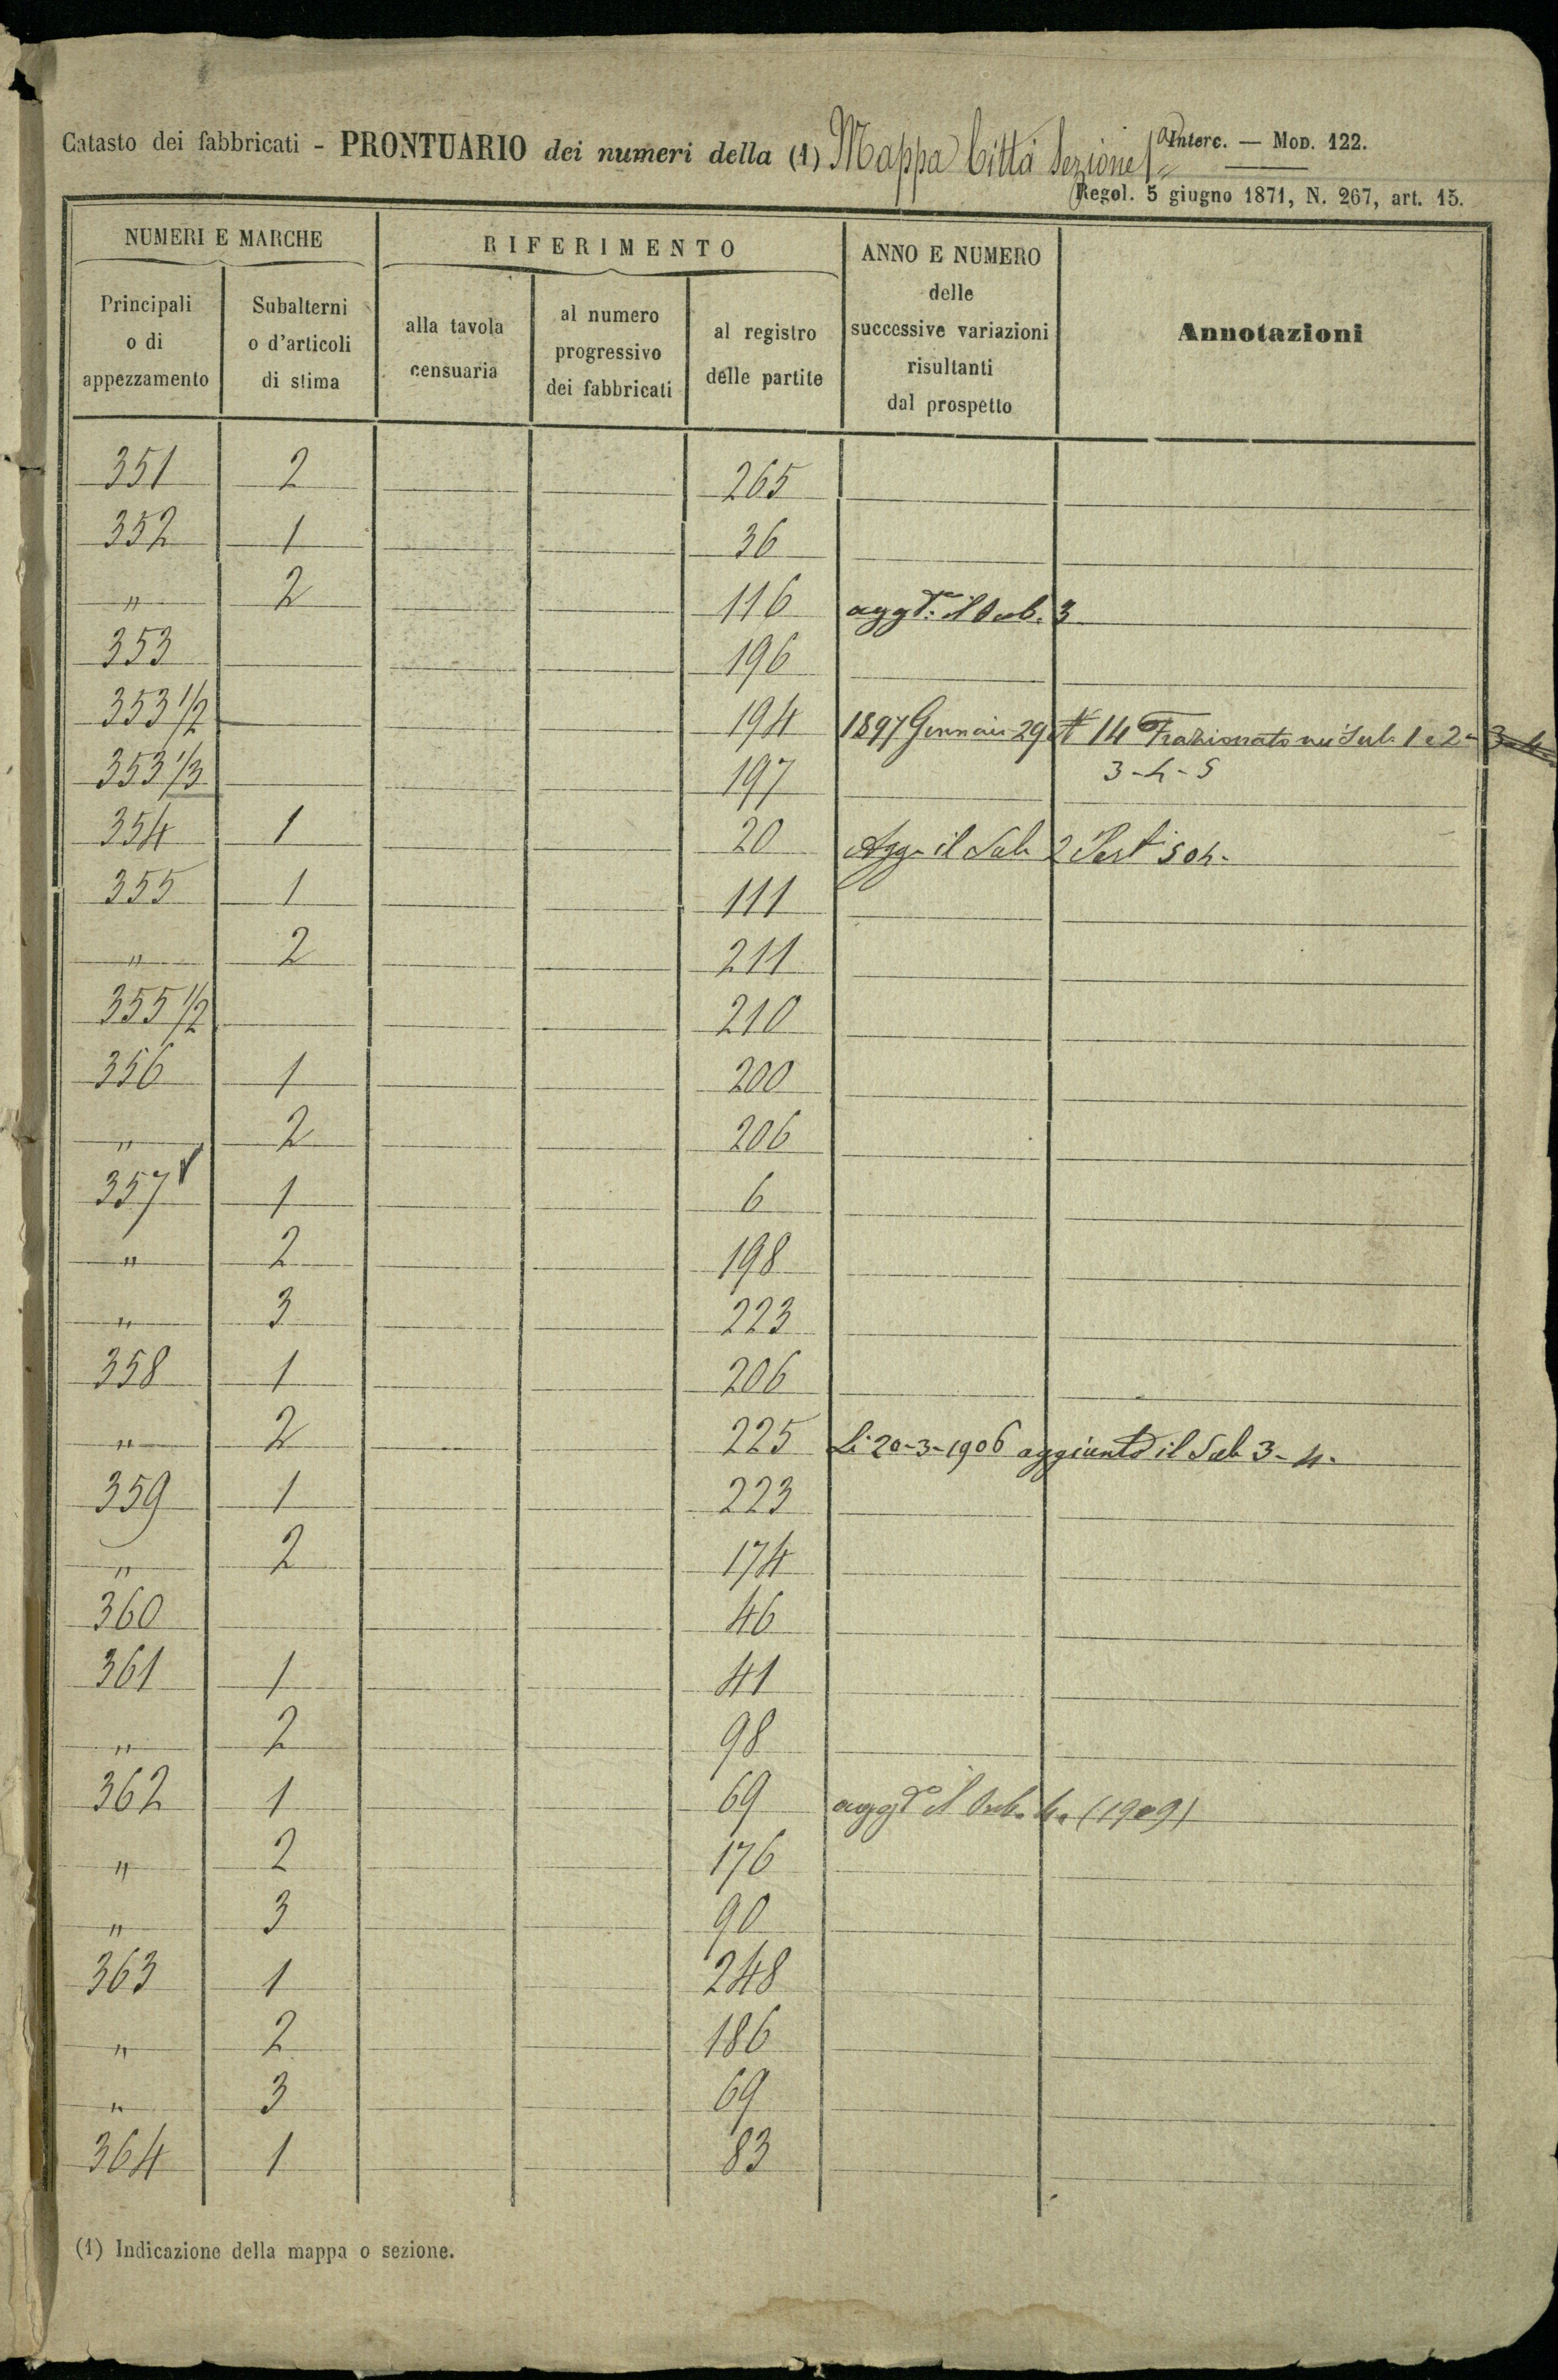 Catasto dei fabbricati - PRONTUARIO dei numeri della (1) Mappa Città Sezione 1ª Interc. — Mod. 122.
Regol. 5 giugno 1871, N. 267, art. 15.
NUMERI E MARCHE RIFERIMENTO ANNO E NUMERO delle successive variazioni risultanti dal prospetto Annotazioni
Principali o di appezzamento Subalterni o d'articoli di stima alla tavola censuaria al numero progressivo dei fabbricati al registro delle partite
351 2 265
352 1 36
" 2 116 aggto. il Sub. 3
353 196
353 1/2 194 1897 Gennaio 29 N 14 Frazionato nei Sub. 1 e 2 - 3-4
353 1/3 197 3-4-5
354 1 20 Agg. il Sub 2 Part 504.
355 1 111
" 2 211
355 1/2 210
356 1 200
" 2 206
357 1 6
" 2 198
" 3 223
358 1 206
" 2 225 Li 20-3-1906 aggiunto il Sub 3-4.
359 1 223
" 2 174
360 46
361 1 41
" 2 98
362 1 69 aggto il Sub. 4. (1909)
" 2 176
" 3 90
363 1 248
" 2 186
" 3 69
364 1 83
(1) Indicazione della mappa o sezione.